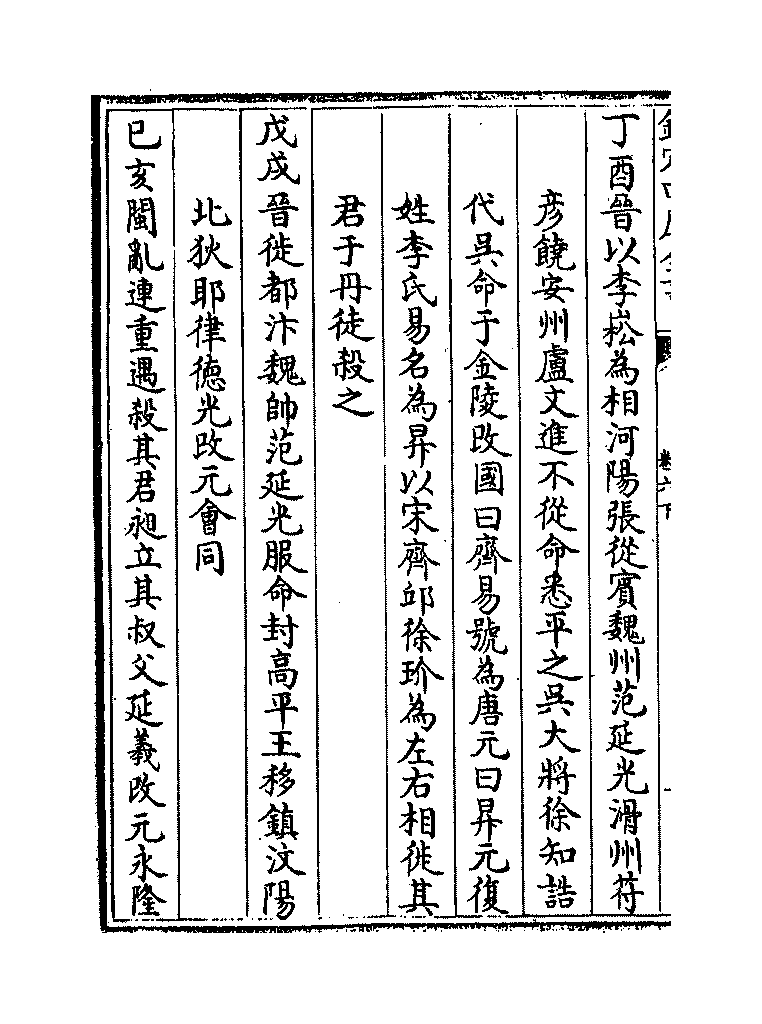 丁酉晉以李崧為相河陽張從賓魏州范延光滑州苻
彦饒安州盧文進不從命悉平之吳大將徐知誥
代吳命于金陵改國曰齊易號為唐元曰昇元復
姓李氏易名為昇以宋齊邱徐玠為左右相徙其
君于丹徒殺之
戊戌晉徙都汴魏帥范延光服命封高平王移鎮汶陽
北狄耶律德光改元會同
已亥閩亂連重遇殺其君昶立其叔父延羲改元永隆